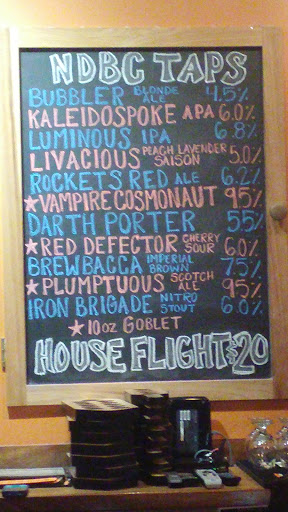 NDBC TAPS
BUBBLER BLONDE ALE 4.5%
KALEIDOSPOKE APA 6.0%
LUMINOUS IPA 6.8%
LIVACIOUS PEACH LAVENDER SAISON 5.0%
ROCKETS RED ALE 6.2%
★VAMPIRE COSMONAUT 95%
DARTH PORTER 5.5%
★RED DEFECTOR CHERRY SOUR 6.0%
BREWBACCA IMPERIAL BROWN 75%
★PLUMPTUOUS SCOTCH ALE 95%
IRON BRIGADE NITRO STOUT 6.0%
★10oz GOBLET
HOUSE FLIGHT $20